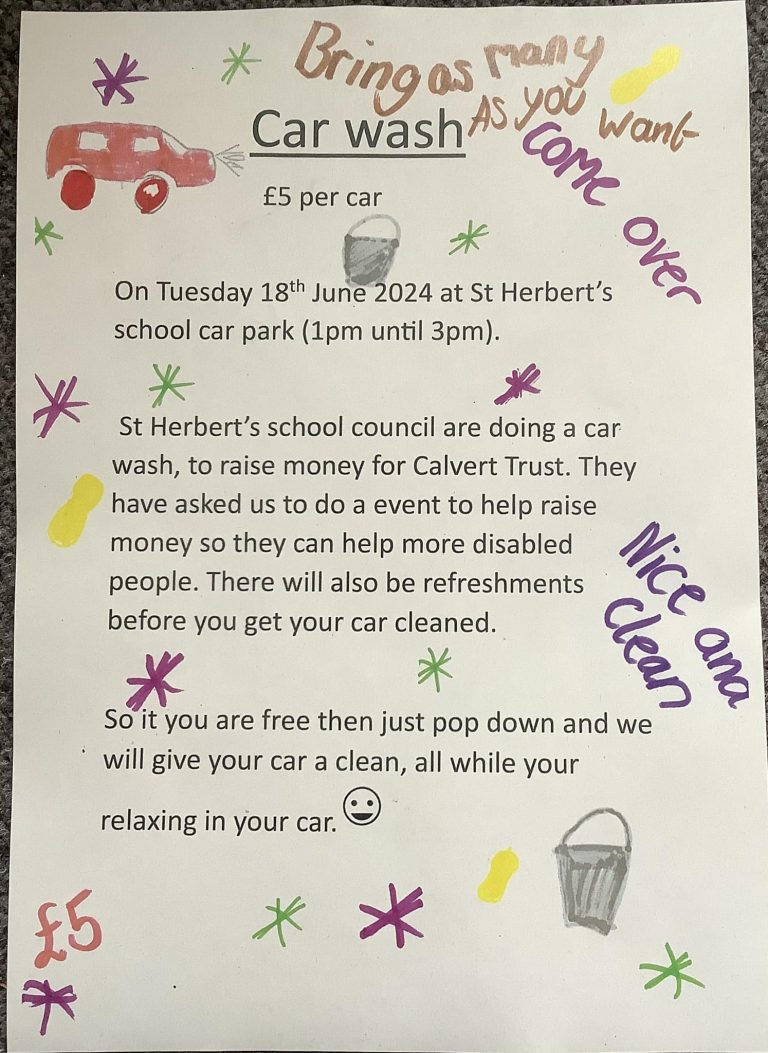 Bring as many
As you want
Car wash
come over
£5 per car
On Tuesday 18th June 2024 at St Herbert's
school car park (1pm until 3pm).
St Herbert's school council are doing a car
wash, to raise money for Calvert Trust. They
have asked us to do a event to help raise
money so they can help more disabled
people. There will also be refreshments
before you get your car cleaned.
Nice and
clean
So it you are free then just pop down and we
will give your car a clean, all while your
relaxing in your car.
£5